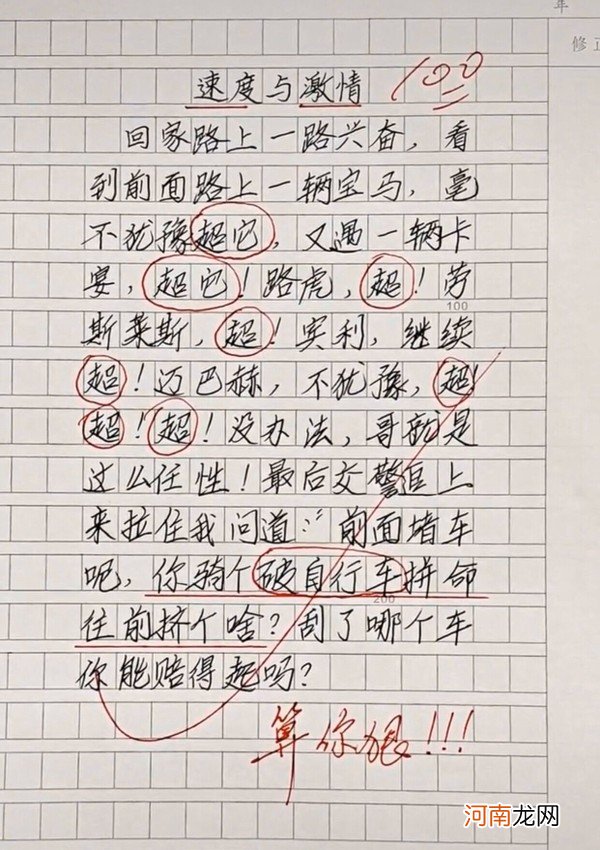 年
修正
速度与激情 100
回家路上一路兴奋，看
到前面路上一辆宝马，毫
不犹豫超它，又遇一辆卡
宴，超它！路虎，超！劳
100
斯莱斯，超！宾利，继续
超！迈巴赫，不犹豫，超！
超！超！没办法，哥就是
这么任性！最后交警追上
来拉住我问道：“前面堵车
呢，你骑个破自行车拼命
200
往前挤个啥？刮了哪个车
你能赔得起吗？
算你狠！！！
河南龙网